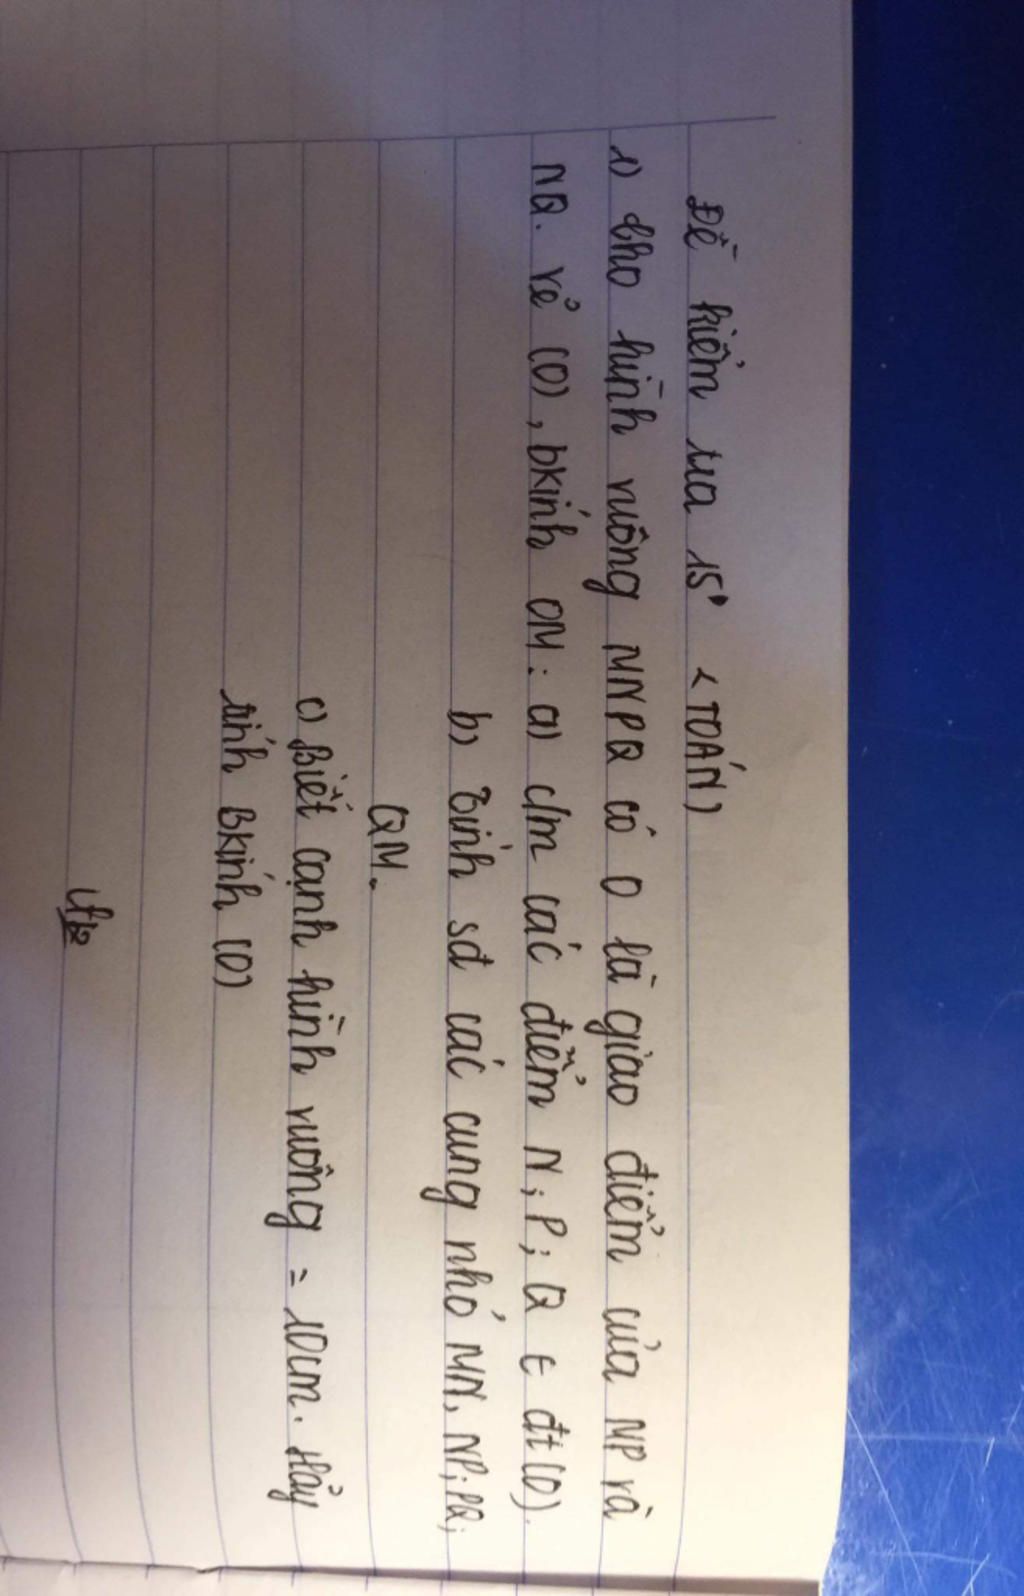 Đề kiểm tra 15' <TOÁN)
1) Cho hình vuông MNPQ có O là giao điểm của MP và
NQ. Vẽ (O), bkính OM: a) c/m các điểm N; P; Q ∈ đt(O).
b) Tính sđ các cung nhỏ MN, NP; PQ;
QM.
c) Biết cạnh hình vuông = 10cm. Hãy
tính Bkính (O)